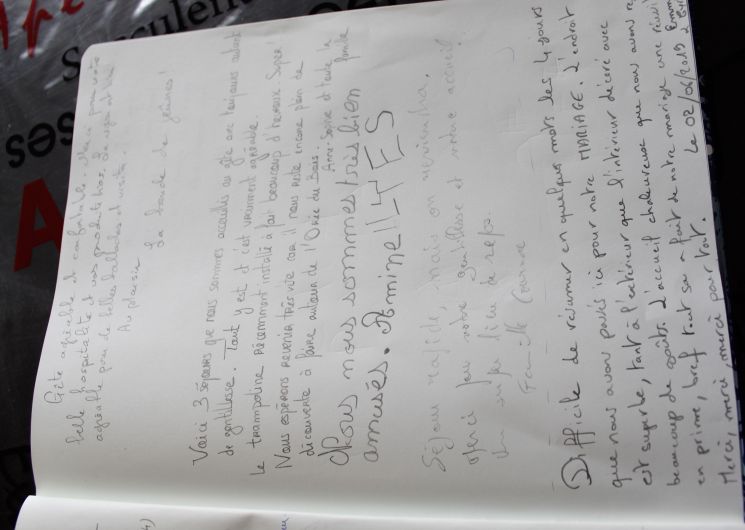 Gîte agréable et confortable. Merci pour votre
belle hospitalité et vos produits bios. La région est très
agréable pour de belles ballades et visites.
Au plaisir
La bande de jeunes!
Voici 3 séjours que nous sommes accueillis au gîte avec toujours autant
de gentillesse. Tout y est et c'est vraiment agréable.
Le trampoline récemment installé a fait beaucoup d'heureux. Super
Nous espérons revenir très vite car il nous reste encore plein de
découverte à faire autour de l'Orée du Bois.
Anne-Sophie et toute la
famille
Nous nous sommes très bien
amusés. Amine ILYES
Séjour rapide, mais on reviendra.
Merci pour votre gentillesse et votre accueil
Un super lieu de repos
Famille
Difficile de résumer en quelques mots les 4 jours
que nous avons passés ici pour notre MARIAGE. L'endroit
est superbe, tant à l'extérieur que l'intérieur décoré avec
beaucoup de goûts. L'accueil chaleureux que nous avons
en prime, bref tout ça a fait de notre mariage une
Merci, merci, merci pour tout. Le 02/06/2019